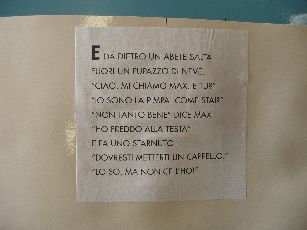 E DA DIETRO UN ABETE SALTA
FUORI UN PUPAZZO DI NEVE.
"CIAO. MI CHIAMO MAX. E TU?"
"IO SONO LA PIMPA. COME STAI?"
"NON TANTO BENE" DICE MAX
"HO FREDDO ALLA TESTA"
E FA UNO STARNUTO.
"DOVRESTI METTERTI UN CAPPELLO."
"LO SO, MA NON CE L'HO!"